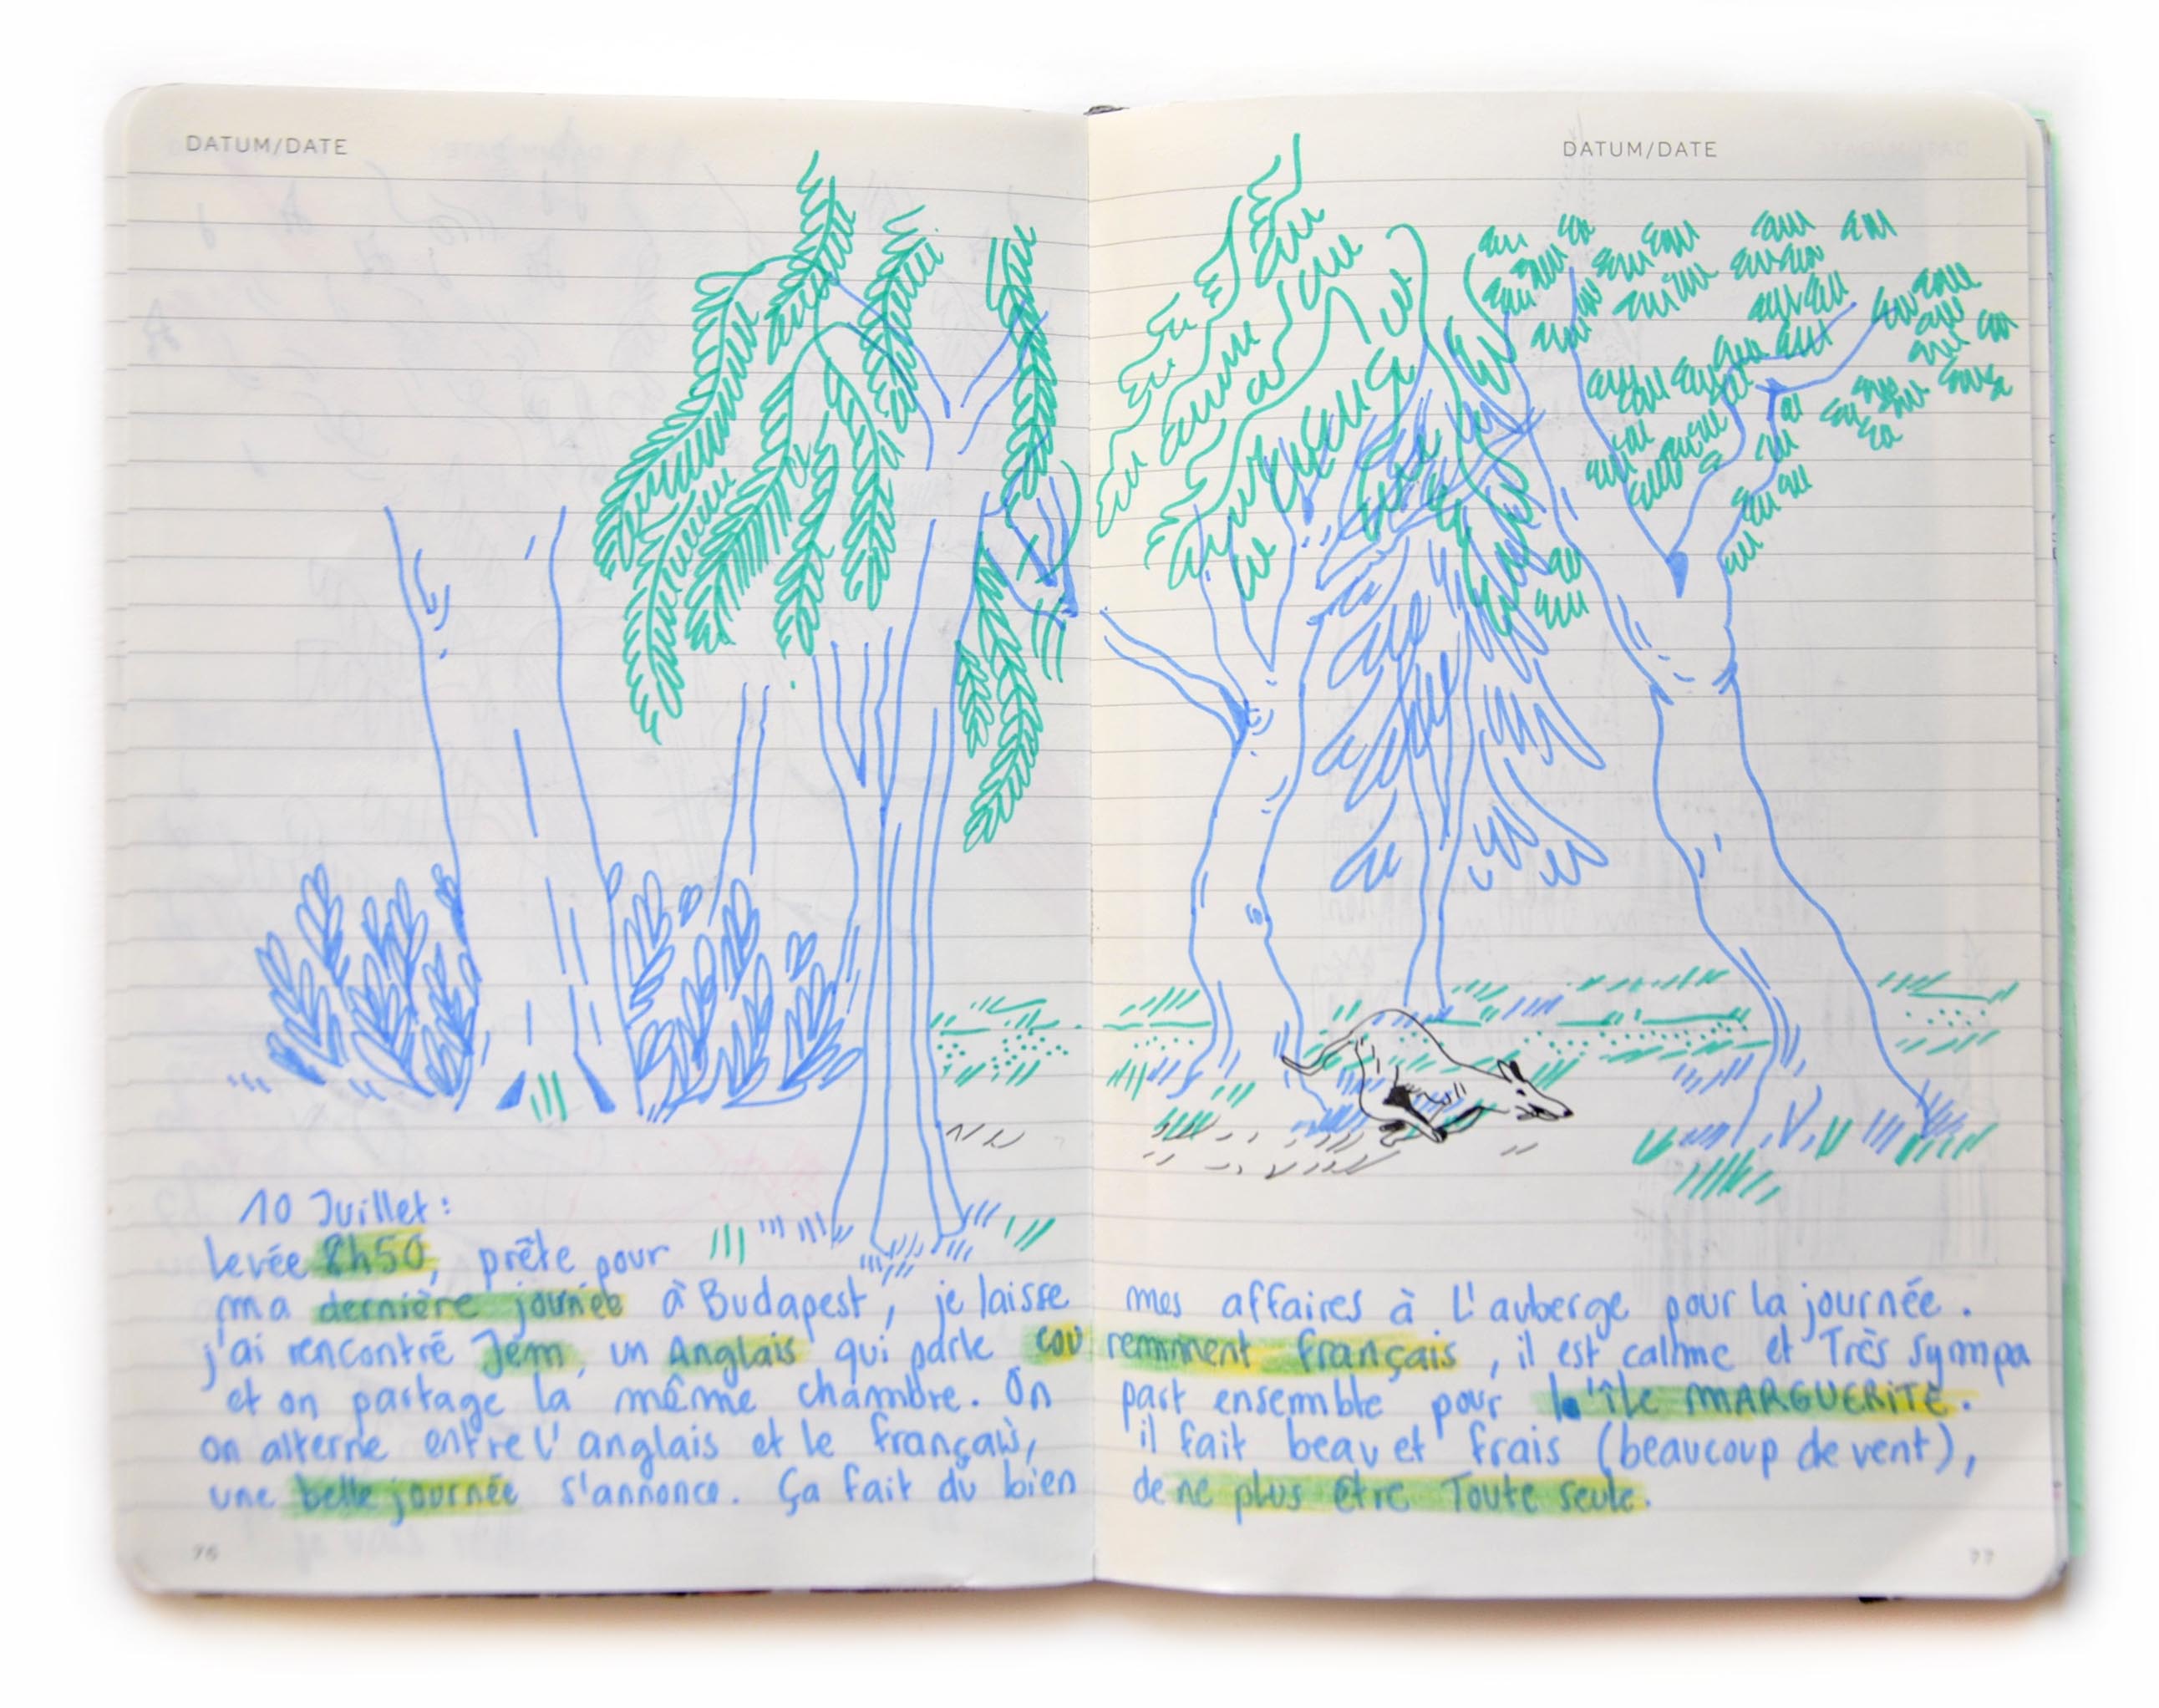 DATUM/DATE
DATUM/DATE
10 Juillet:
levée 8h50, prête pour
ma dernière journée à Budapest, je laisse mes affaires à L'auberge pour la journée.
j'ai rencontré Jem, un Anglais qui parle couremment français, il est calme et Très sympa
et on partage la même chambre. On part ensemble pour l'île MARGUERITE.
on alterne entre l'anglais et le français, il fait beau et frais (beaucoup de vent),
une belle journée s'annonce. Ça fait du bien de ne plus être Toute seule.
76
77